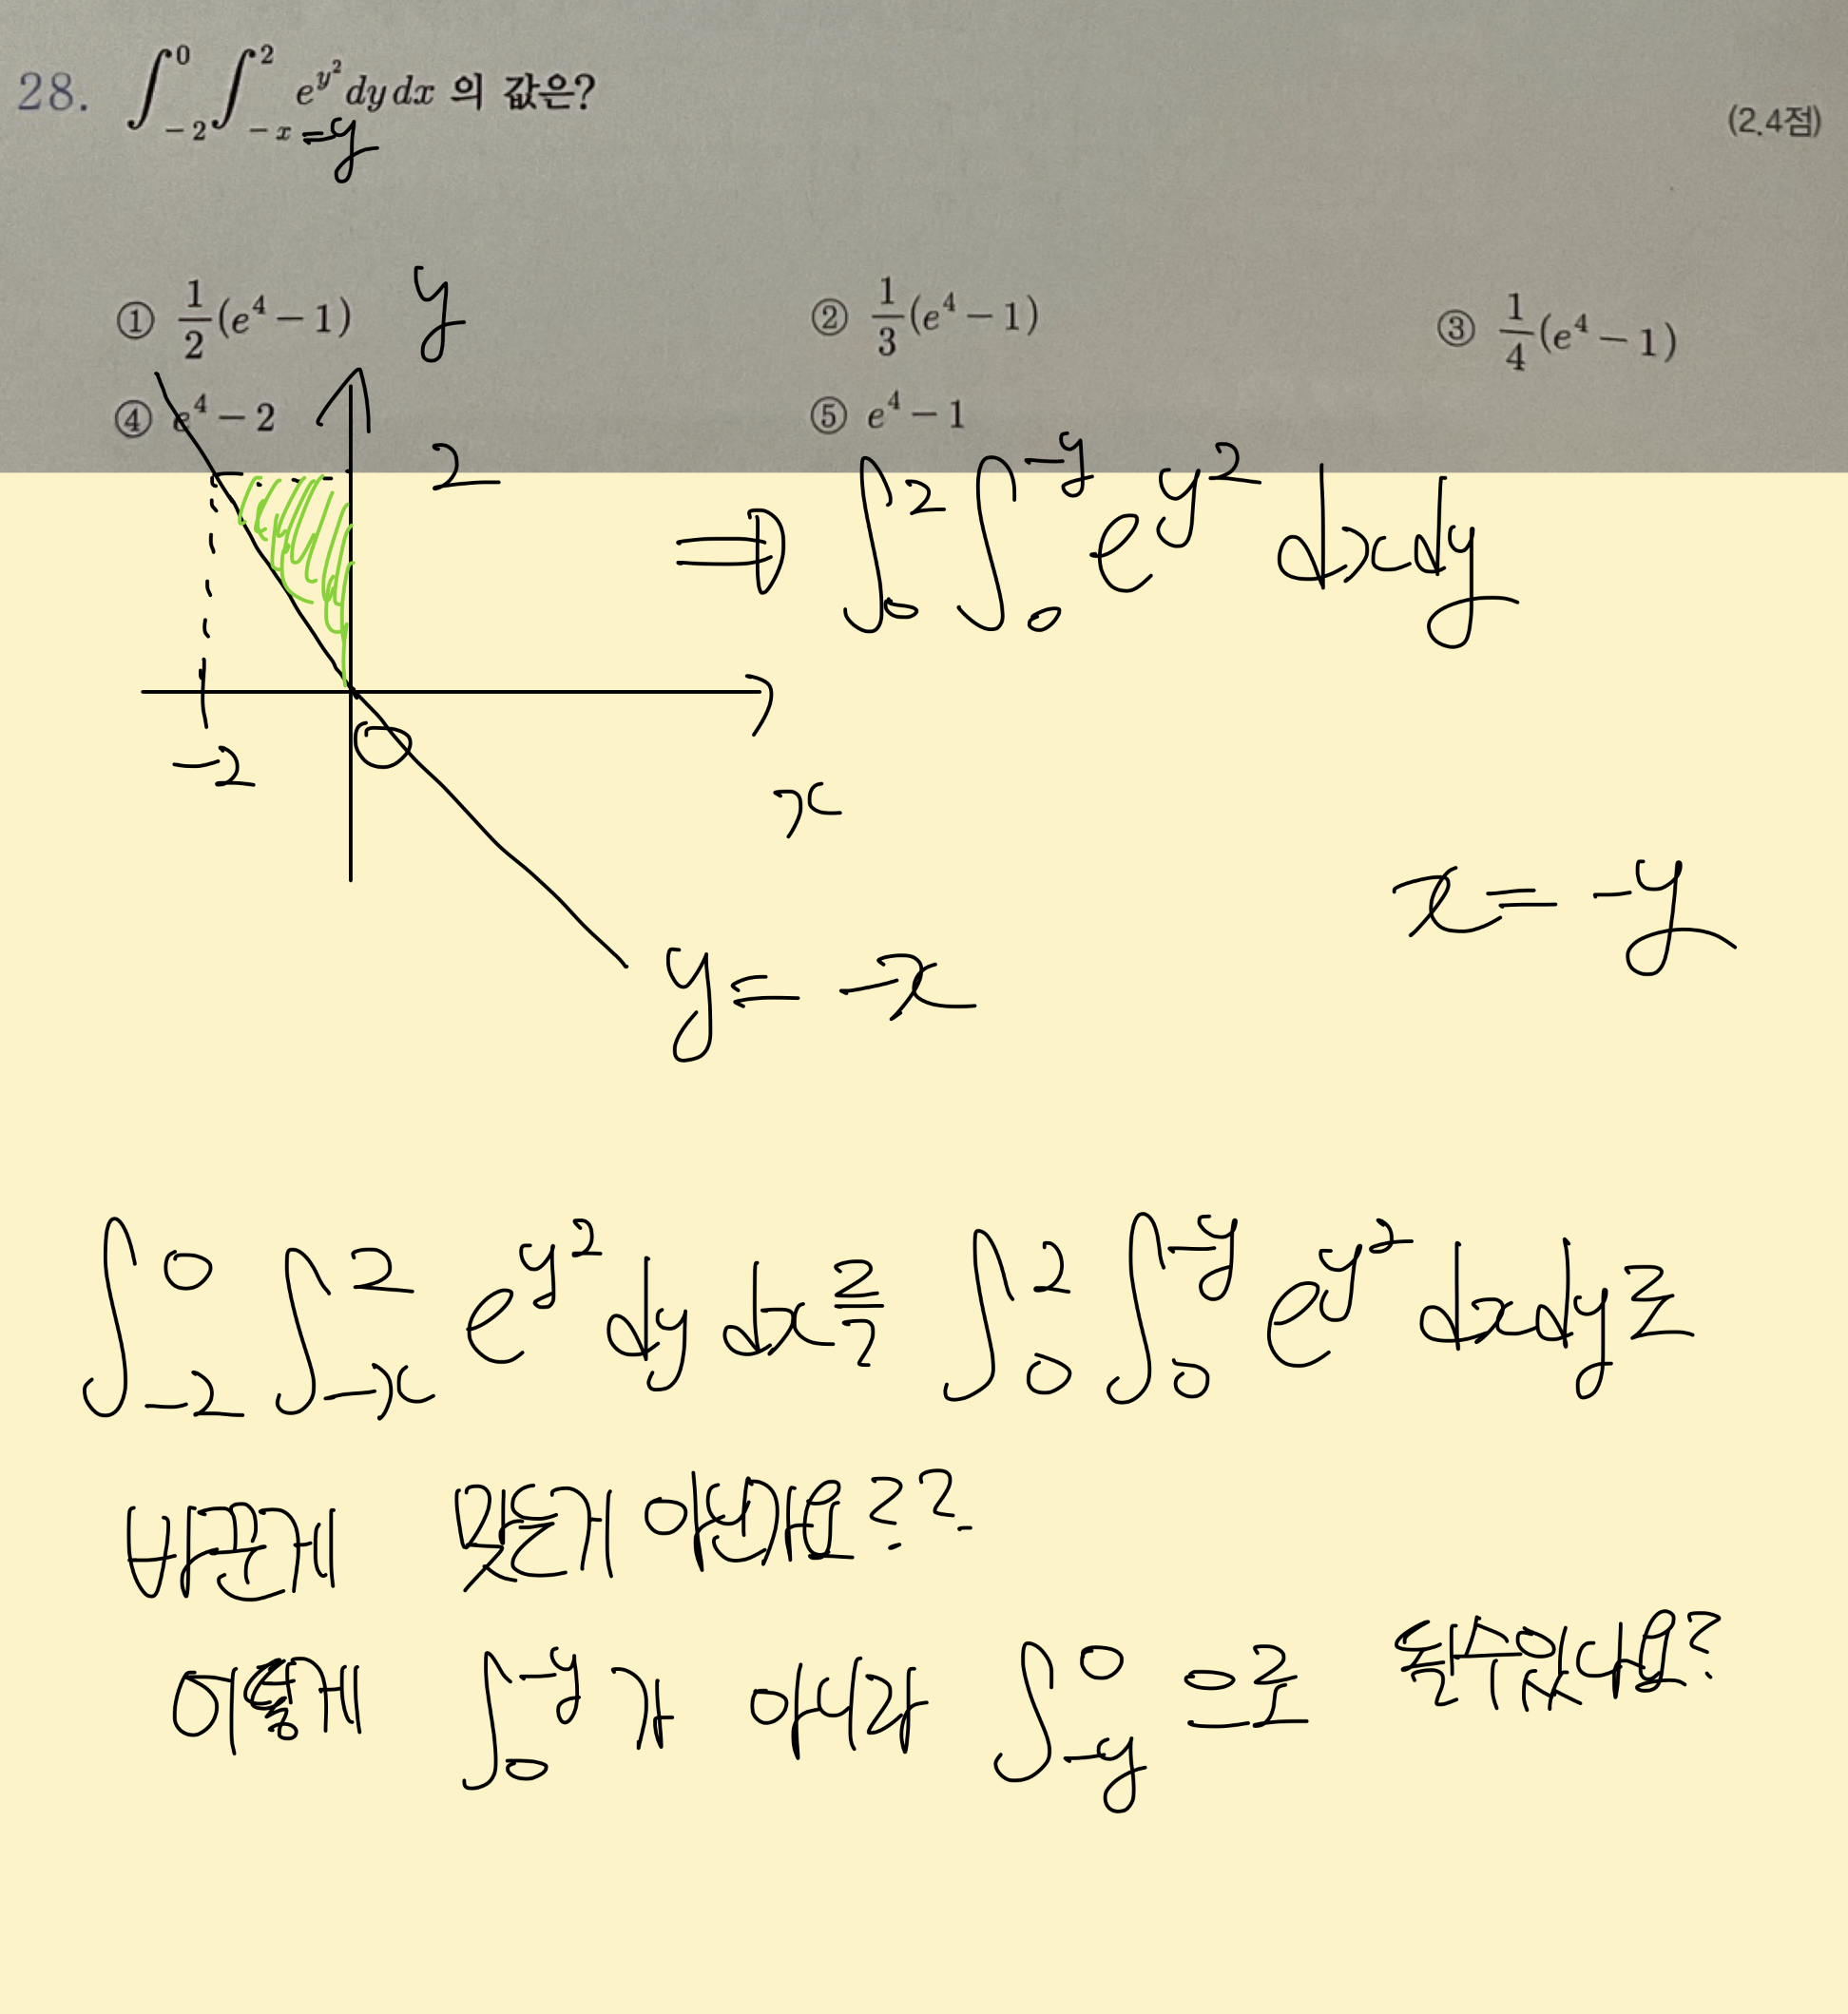 28. ∫_{-2}^{0} ∫_{-x}^{2} e^{y^2} dy dx 의 값은?
= y
(2.4점)
① 1/2(e^4 - 1) ② 1/3(e^4 - 1) ③ 1/4(e^4 - 1)
④ e^4 - 2 ⑤ e^4 - 1
y
2
⇒ ∫_{0}^{2} ∫_{0}^{-y} e^{y^2} dx dy
-2
0
x
x = -y
y = -x
∫_{-2}^{0} ∫_{-x}^{2} e^{y^2} dy dx 를 ∫_{0}^{2} ∫_{0}^{-y} e^{y^2} dx dy 로
바꾼게 맞는거 아닌가요??
어떻게 ∫_{0}^{-y} 가 아니라 ∫_{-y}^{0} 으로 될수있나요?